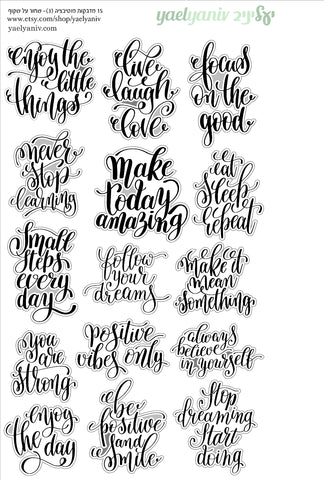 15 מדבקות מוטיבציה (3) - שחור על שקוף
www.etsy.com/shop/yaelyaniv
yaelyaniv.com
yaelyaniv יעל יניב
enjoy the
little
things
live
laugh
love
focus
on the
good
never
stop
learning
make
today
amazing
eat
sleep
repeat
small
steps
every
day
follow
your
dreams
make it
mean
something
you
are
strong
positive
vibes only
always
believe
in yourself
enjoy
the day
be
positive
and
smile
stop
dreaming
start
doing